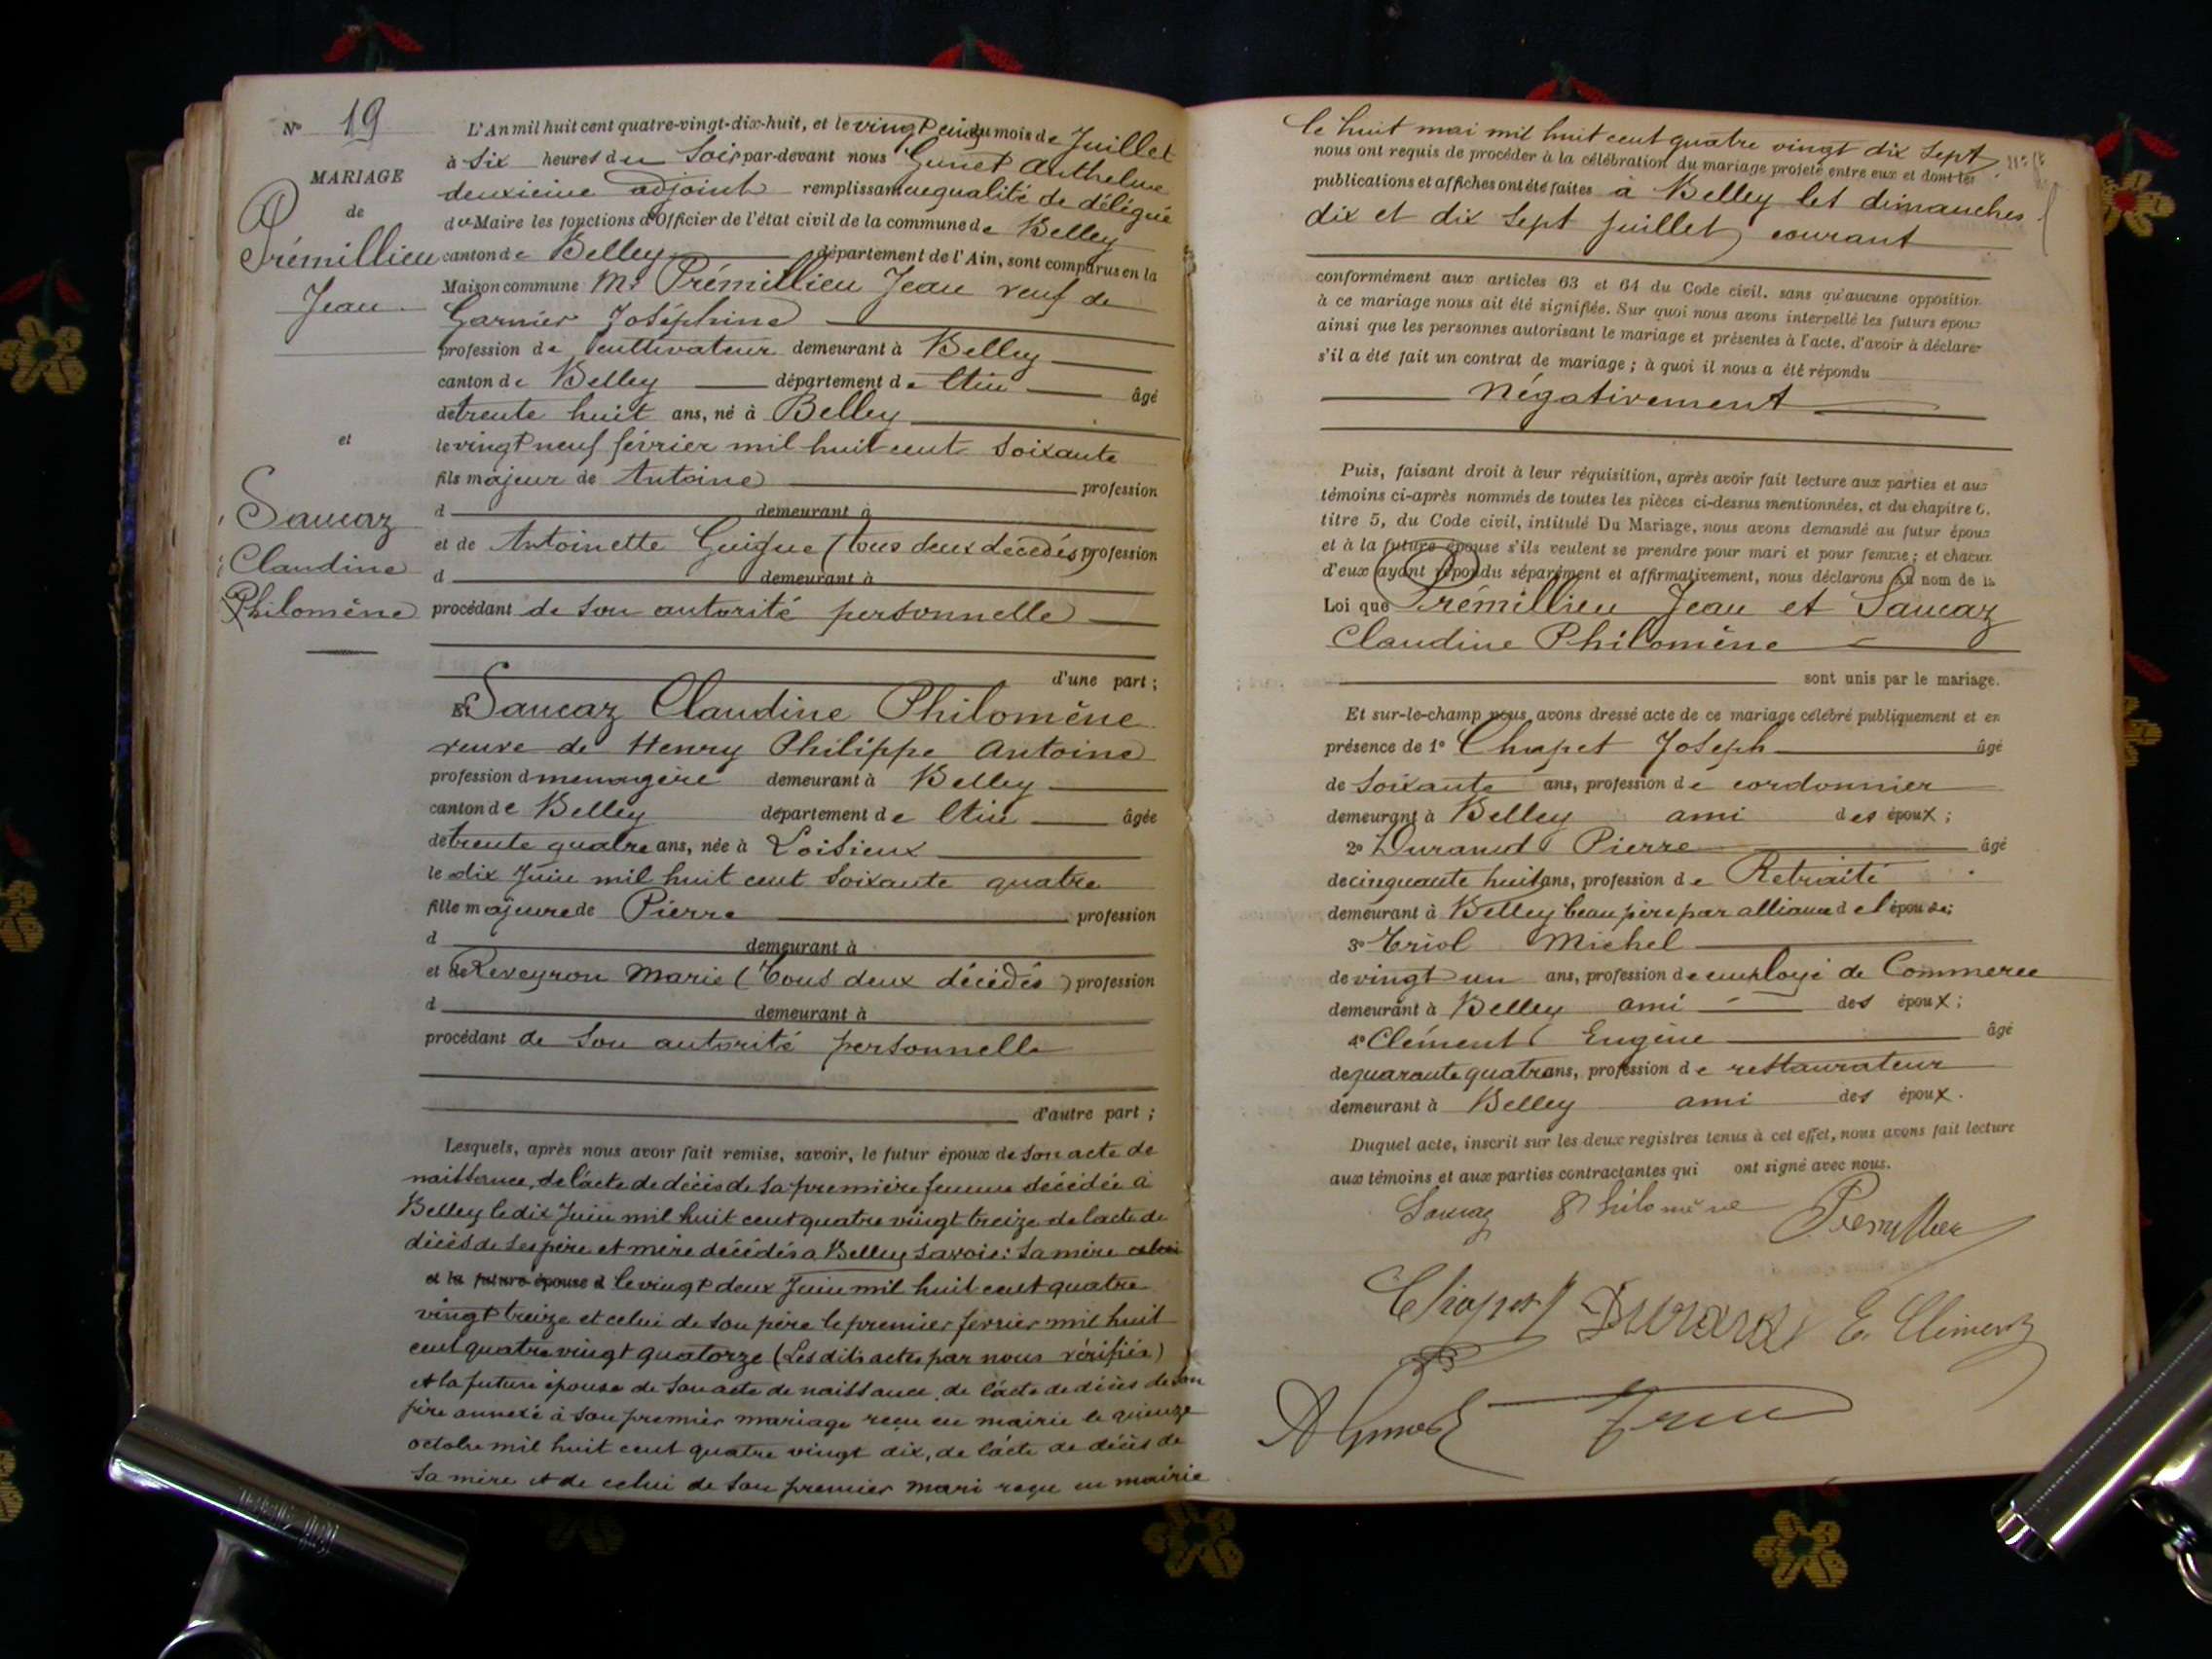 N° 19
MARIAGE
de
Prémillieu
Jean
et
Saucaz
Claudine
Philomène
L'An mil huit cent quatre-vingt-dix-huit, et le vingt cinq du mois de Juillet
à Six heures du Soir par-devant nous Gunet Anthelme
deuxième adjoint remplissant en qualité de délégué
du Maire les fonctions d'Officier de l'état civil de la commune de Belley
canton de Belley département de l'Ain, sont comparus en la
Maison commune Mr Prémillieu Jean veuf de
Garnier Joséphine
profession de cultivateur demeurant à Belley
canton de Belley département de l'Ain âgé
de trente huit ans, né à Belley
le vingt neuf février mil huit cent Soixante
fils majeur de Antoine profession
d demeurant à
et de Antoinette Guigue (tous deux décédés) profession
d demeurant à
procédant de son autorité personnelle
d'une part;
Et Saucaz Claudine Philomène
veuve de Henry Philippe Antoine
profession d menagère demeurant à Belley
canton de Belley département de l'Ain âgée
de trente quatre ans, née à Loisieux
le dix Juin mil huit cent Soixante quatre
fille majeure de Pierre profession
d demeurant à
et de Reveyron Marie (Tous deux décédés) profession
d demeurant à
procédant de son autorité personnelle
d'autre part;
Lesquels, après nous avoir fait remise, savoir, le futur époux de son acte de
naissance, de l'acte de décès de sa première femme décédée à
Belley le dix Juin mil huit cent quatre vingt treize de l'acte de
décès de ses père et mère décédés a Belley Savoir: Sa mère
et la future épouse d le vingt deux Juin mil huit cent quatre
vingt treize et celui de son père le premier fevrier mil huit
cent quatre vingt quatorze (Les dits actes par nous vérifiés)
et la future épouse de son acte de naissance, de l'acte de décès de son
père annexé à son premier mariage reçu en mairie le quinze
octobre mil huit cent quatre vingt dix, de l'acte de décès de
Sa mère et de celui de son premier mari reçu en mairie
le huit mai mil huit cent quatre vingt dix sept
nous ont requis de procéder à la célébration du mariage projeté entre eux et dont les
publications et affiches ont été faites à Belley les dimanches
dix et dix sept juillet courant
conformément aux articles 63 et 64 du Code civil, sans qu'aucune opposition
à ce mariage nous ait été signifiée. Sur quoi nous avons interpellé les futurs époux
ainsi que les personnes autorisant le mariage et présentes à l'acte, d'avoir à déclarer
s'il a été fait un contrat de mariage; à quoi il nous a été répondu
Négativement
Puis, faisant droit à leur réquisition, après avoir fait lecture aux parties et aux
témoins ci-après nommés de toutes les pièces ci-dessus mentionnées, et du chapitre 6,
titre 5, du Code civil, intitulé Du Mariage, nous avons demandé au futur époux
et à la future épouse s'ils veulent se prendre pour mari et pour femme; et chacun
d'eux ayant répondu séparément et affirmativement, nous déclarons au nom de la
Loi que Prémillieu Jean et Saucaz
Claudine Philomène
sont unis par le mariage.
Et sur-le-champ nous avons dressé acte de ce mariage célébré publiquement et en
présence de 1° Chapet Joseph âgé
de Soixante ans, profession de cordonnier
demeurant à Belley ami des époux;
2° Durand Pierre âgé
de cinquante huit ans, profession de Retraité
demeurant à Belley beau père par alliance de l'épouse;
3° Triol Michel
de vingt un ans, profession de employé de Commerce
demeurant à Belley ami des époux;
4° Clément Eugène âgé
de quarante quatre ans, profession de restaurateur
demeurant à Belley ami des époux.
Duquel acte, inscrit sur les deux registres tenus à cet effet, nous avons fait lecture
aux témoins et aux parties contractantes qui ont signé avec nous.
Saucaz Philomène Premillieu
Chapet Durand E. Clément